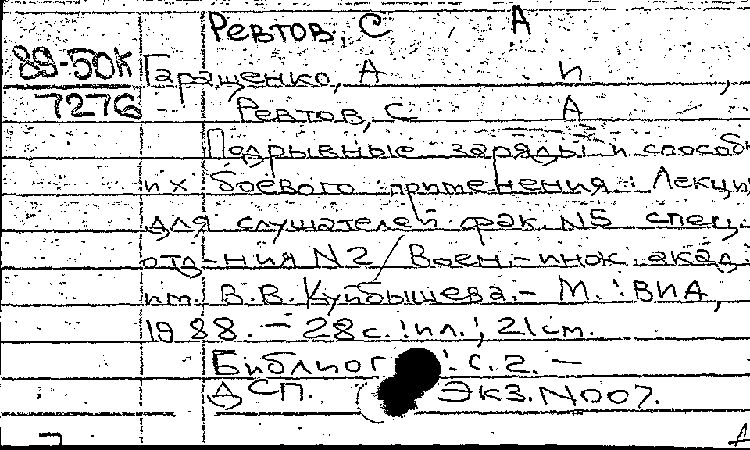 Ревтов, С А
89-50к Гаращенко, А И ,
7276 – Ревтов, С А
Подрывные заряды и способы
их боевого применения: Лекция
для слушателей фак. N5 спец.
отд-ния N2 / Воен.-инж. акад.
им. В.В. Куйбышева. – М.: ВИА,
1988. – 28 с.: ил.; 21 см.
Библиог : с. 2. –
ДСП. Экз. N007.